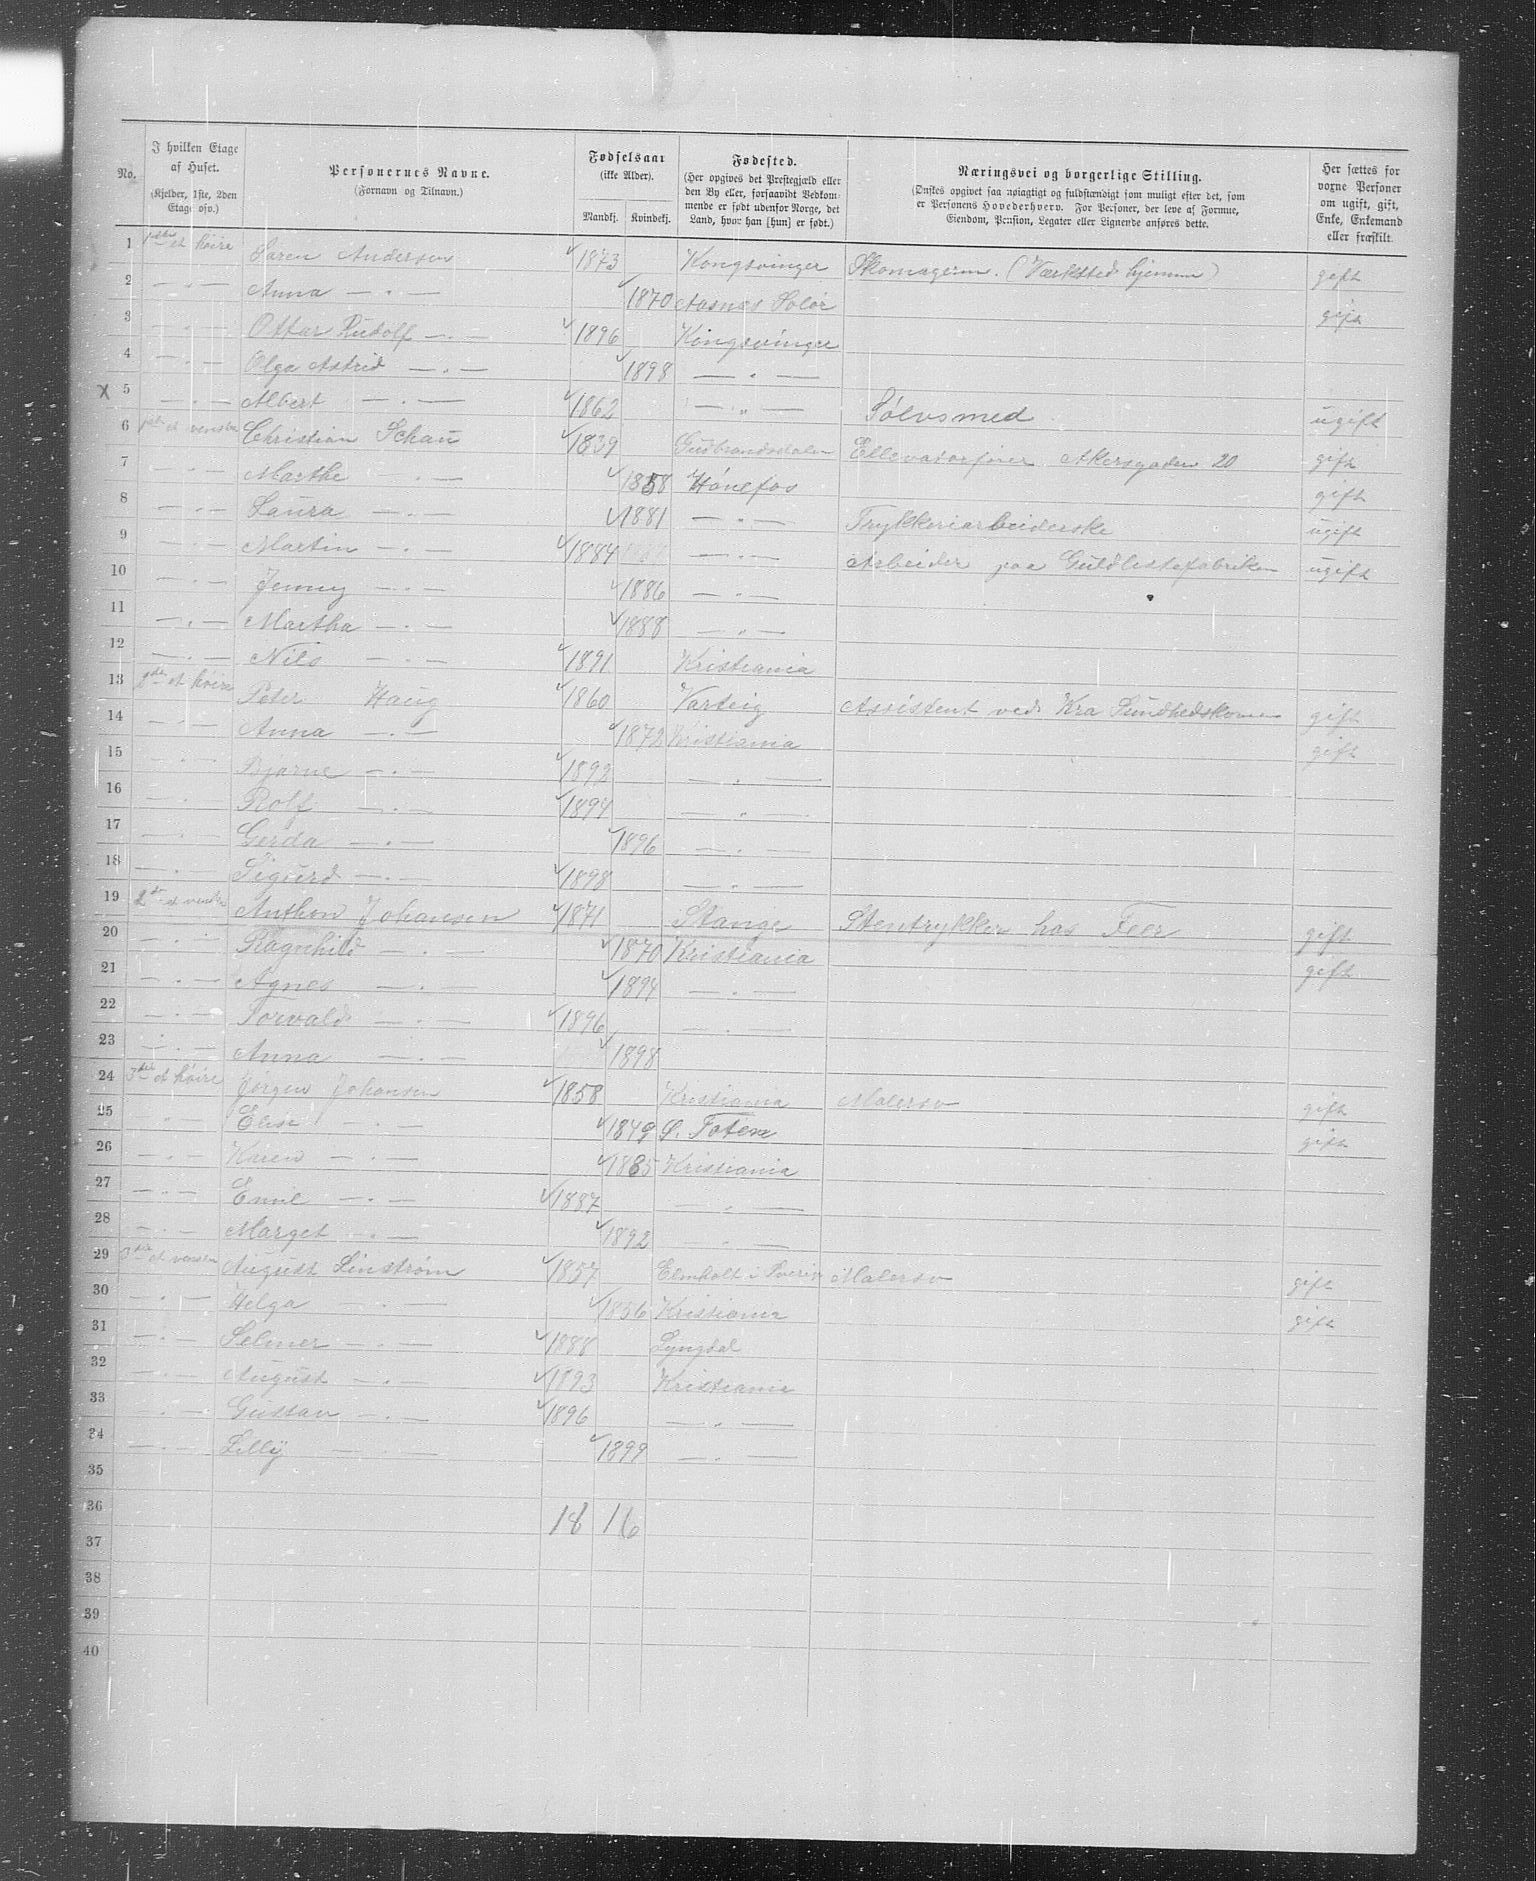 No. I hvilken Etage af Huset. (Kjelder, 1ste, 2den Etage osv.) Personernes Navne. (Fornavn og Tilnavn.) Fødselsaar (ikke Alder). Mandkj. Kvindekj. Fødested. (Her opgives det Præstegjæld eller den By eller, forsaavidt Vedkommende er født udenfor Norge, det Land, hvor han [hun] er født.) Næringsvei og borgerlige Stilling. (Ønskes opgivet saa nøiagtigt og fuldstændigt som muligt efter det, som er Personens Hovederhverv. For Personer, der leve af Formue, Eiendom, Pension, Legater eller Lignende anføres dette. Her sættes for voxne Personer om ugift, gift, Enke, Enkemand eller fraskilt.
1 1ste et høire Søren Andersen 1873 Kongsvinger Skomagerm. (Værksted hjemme) gift
2 — " — Anna — " — 1870 Aasnes Solør gift
3 — " — Ottar Rudolf — " — 1896 Kongsvinger
4 — " — Olga Astrid — " — 1898 — " —
X 5 — " — Albert — " — 1862 — " — Sølvsmed ugift
6 1ste et venstre Christian Schau 1839 Gudbrandsdalen Ellevatorfører Akersgaden 20 gift
7 — " — Marthe — " — 1858 Hønefos gift
8 — " — Laura — " — 1881 — " — Trykkeriarbeiderske ugift
9 — " — Martin — " — 1884 — " — Arbeider paa Guldlistefabriken ugift
10 — " — Jenny — " — 1886 — " —
11 — " — Martha — " — 1888 — " —
12 — " — Nils — " — 1891 Kristiania
13 et høire Peter Haug 1860 Varteig Assistent ved Kra Sundhedskom gift
14 — " — Anna — " — 1872 Kristiania gift
15 — " — Bjarne — " — 1892 — " —
16 — " — Rolf — " — 1894 — " —
17 — " — Gerda — " — 1896 — " —
18 — " — Sigurd — " — 1898 — " —
19 2 et venstre Anthon Johansen 1871 Stange Stentrykker hos Feer gift
20 — " — Ragnhild — " — 1870 Kristiania gift
21 — " — Agnes — " — 1894 — " —
22 — " — Torvald — " — 1896 — " —
23 — " — Anna — " — 1898
24 3die et høire Jørgen Johansen 1858 Kristiania Malersv gift
25 " Elise — " — 1849 Ø. Toten gift
26 — " — Karen — " — 1885 Kristiania
27 — " — Emil — " — 1887 — " —
28 — " — Marget — " — 1892 — " —
29 3die et venstre August Linstrøm 1857 Elmholt i Sverig Malersv gift
30 — " — Helga — " — 1856 Kristiania gift
31 — " — Selmer — " — 1888 Lyngdal
32 — " — August — " — 1893 Kristiania
33 — " — Gustav — " — 1896 — " —
34 — " — Lilly — " — 1899 — " —
35
36 18 16
37
38
39
40